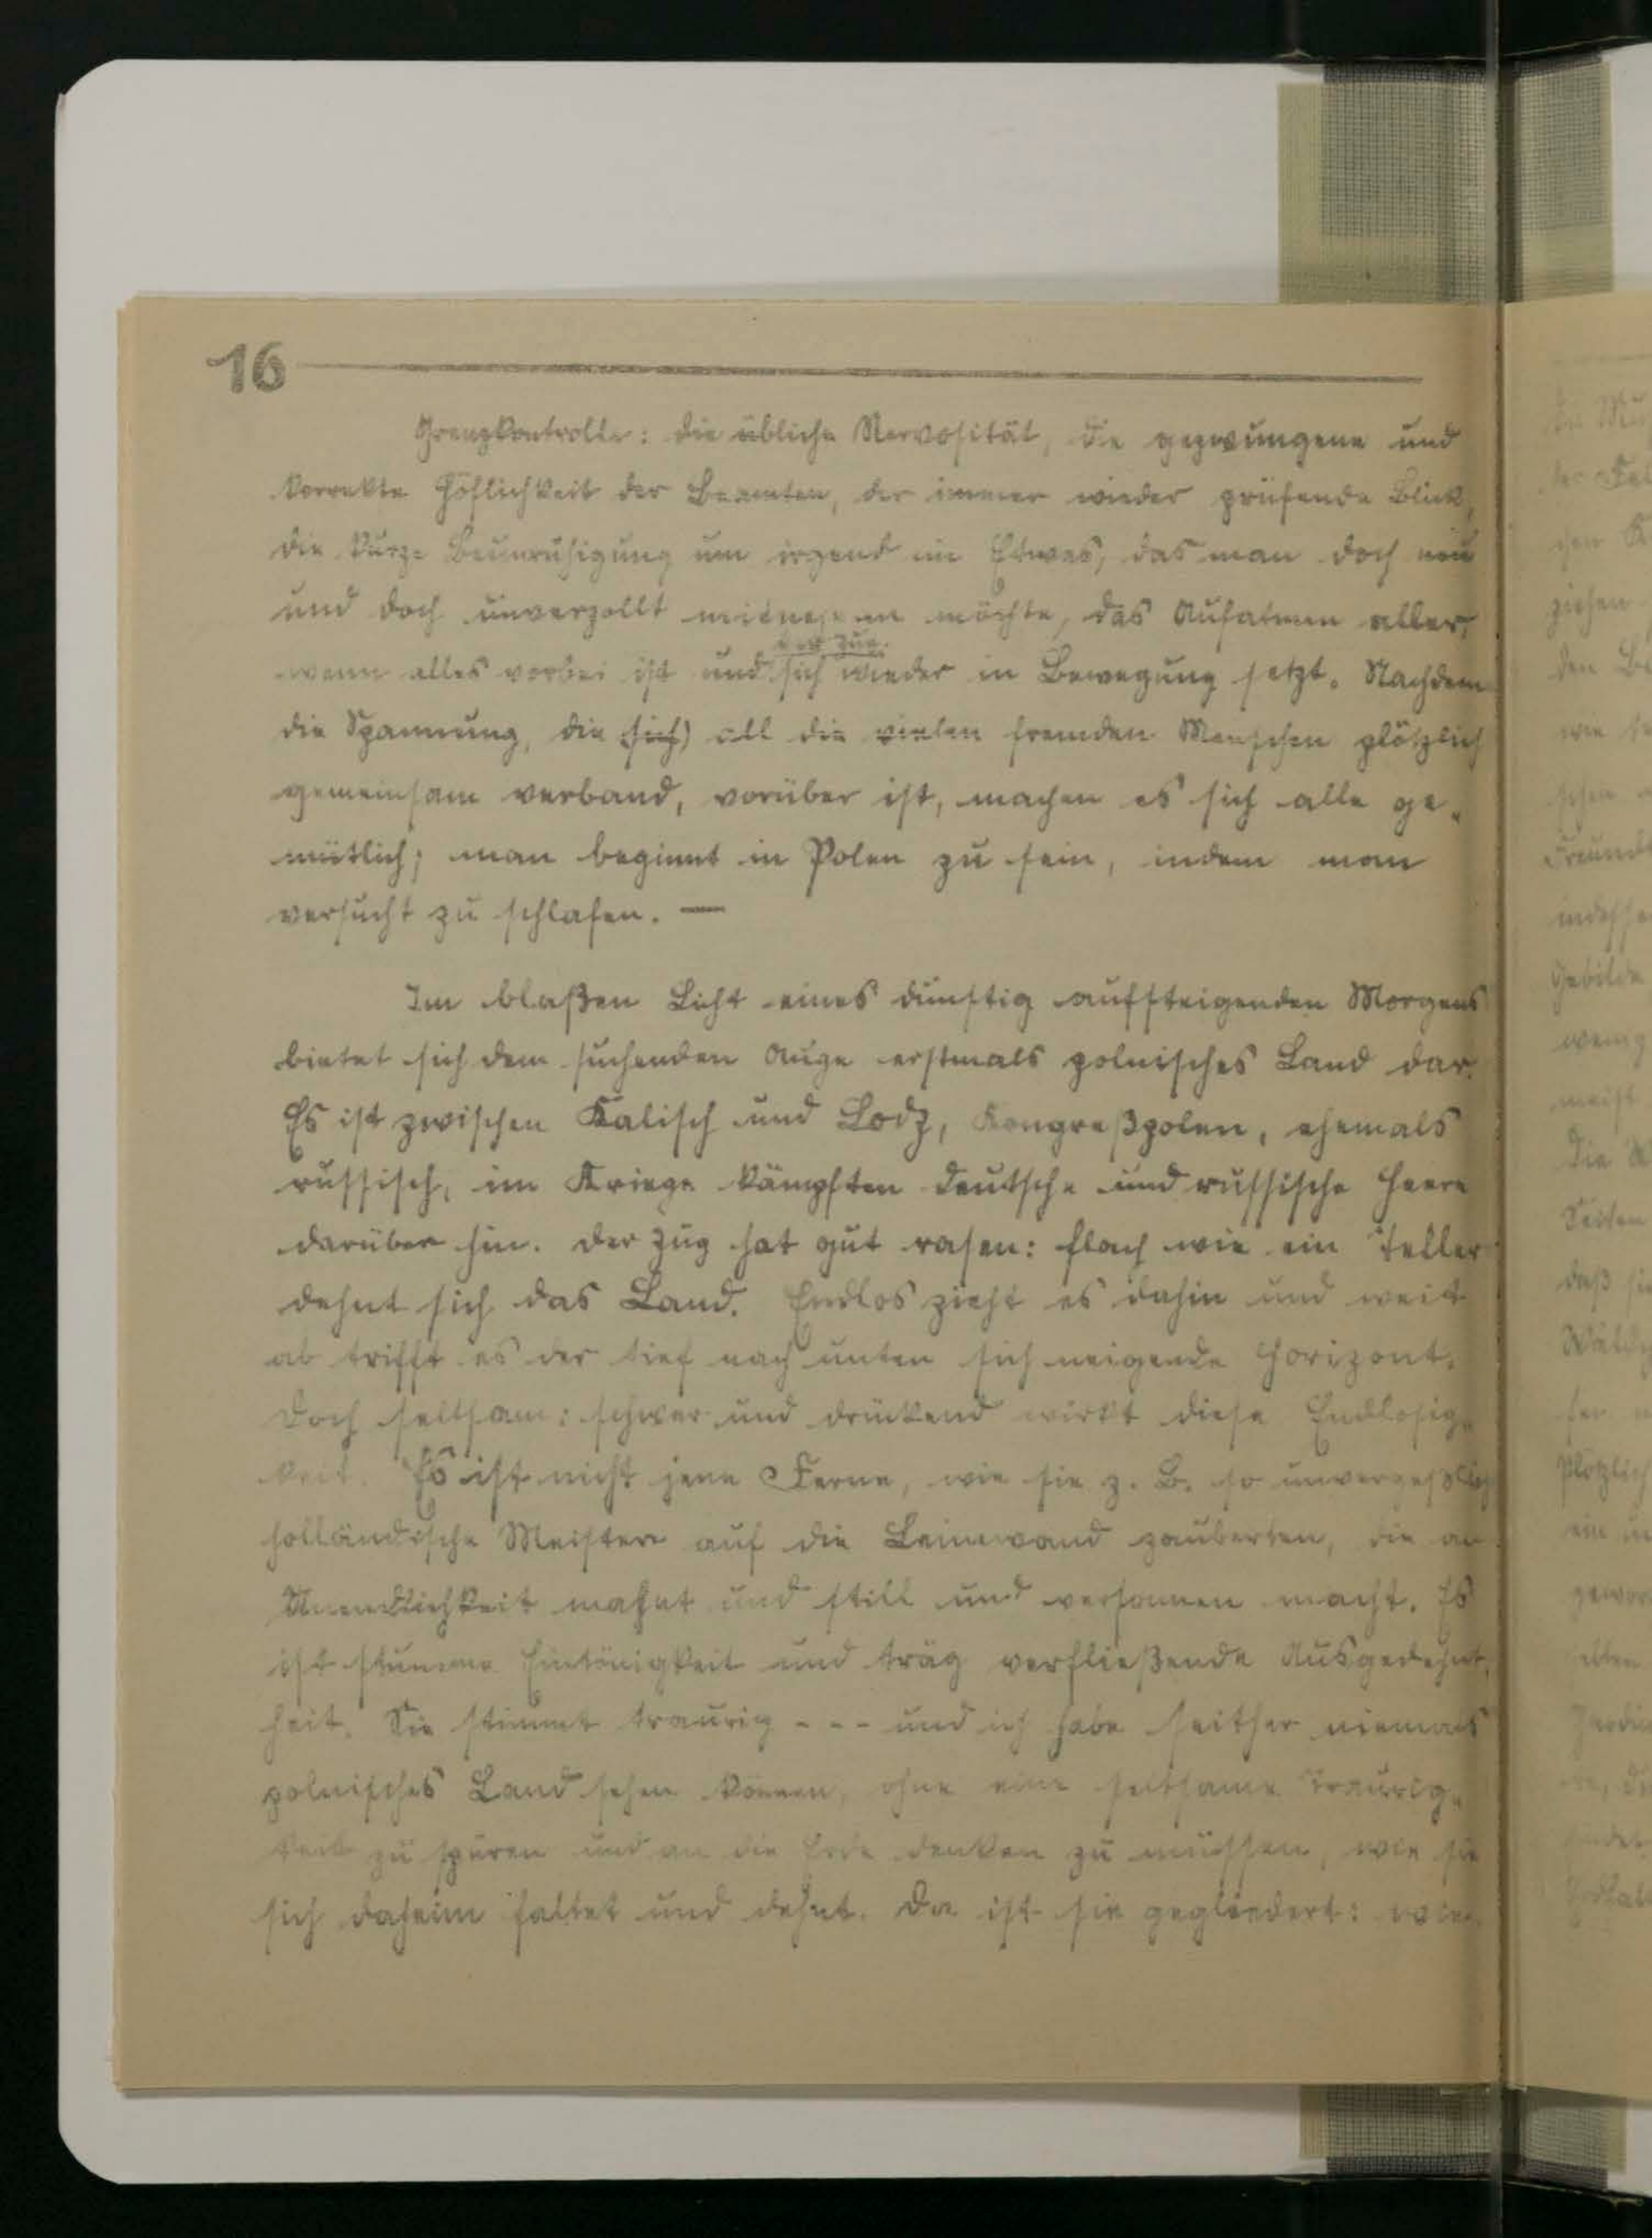 16
Grenzkontrolle: die übliche Nervosität, die gezwungene und
korrekte Höflichkeit der Beamten, der immer wieder prüfende Blick,
die kurze Beunruhigung um irgend ein Etwas, das man doch neu
und doch unverzollt mitnehmen möchte, das Aufatmen aller,
der Zug
wenn alles vorbei ist und sich wieder in Bewegung setzt. Nachdem
die Spannung, die (sich) all die vielen fremden Menschen plötzlich
gemeinsam verband, vorüber ist, machen es sich alle ge-
mütlich; man beginnt in Polen zu sein, indem man
versucht zu schlafen. —
Im blaßen Licht eines dunstig aufsteigenden Morgens
bietet sich dem suchenden Auge erstmals polnisches Land dar.
Es ist zwischen Kalisch und Lodz, Kongreßpolen, ehemals
russisch, im Kriege kämpften deutsche und russische Heere
darüber hin. Der Zug hat gut rasen: flach wie ein Teller
dehnt sich das Land. Endlos zieht es dahin und weit
ab trifft es der tief nach unten sich neigende Horizont.
Doch seltsam: schwer und drückend wirkt diese Endlosig-
keit. Es ist nicht jene Ferne, wie sie z. B. so unvergeßlich
holländische Meister auf die Leinewand zauberten, die an
Unendlichkeit mahnt und still und versonnen macht. Es
ist stumme Eintönigkeit und träg verfließende Ausgedehnt-
heit. Sie stimmt traurig - - - und ich habe seither niemals
polnisches Land sehen können, ohne eine seltsame Traurig-
keit zu spüren und an die Erde denken zu müssen, wie sie
sich daheim faltet und dehnt. Da ist sie gegliedert: